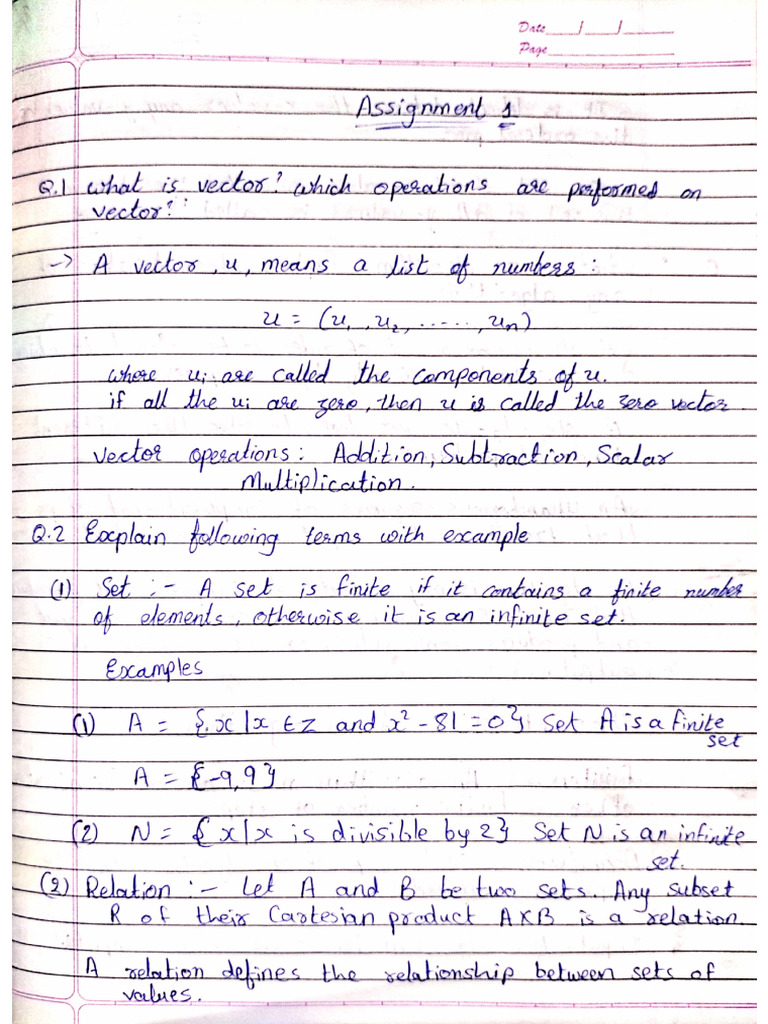 Date / /
Page
Assignment 1
Q.1 What is vector? which operations are performed on
vector?
-> A vector, u, means a list of numbers:
u = (u₁, u₂, ......, uₙ)
where uᵢ are called the components of u.
if all the uᵢ are zero, then u is called the zero vector.
Vector operations: Addition, Subtraction, Scalar
Multiplication.
Q.2 Explain following terms with example
(1) Set :- A set is finite if it contains a finite number
of elements, otherwise it is an infinite set.
Examples
(1) A = {x | x ∈ Z and x² - 81 = 0} Set A is a finite
set
A = {-9, 9}
(2) N = {x | x is divisible by 2} Set N is an infinite
set.
(2) Relation :- Let A and B be two sets. Any subset
R of their Cartesian product A×B is a relation.
A relation defines the relationship between sets of
values.